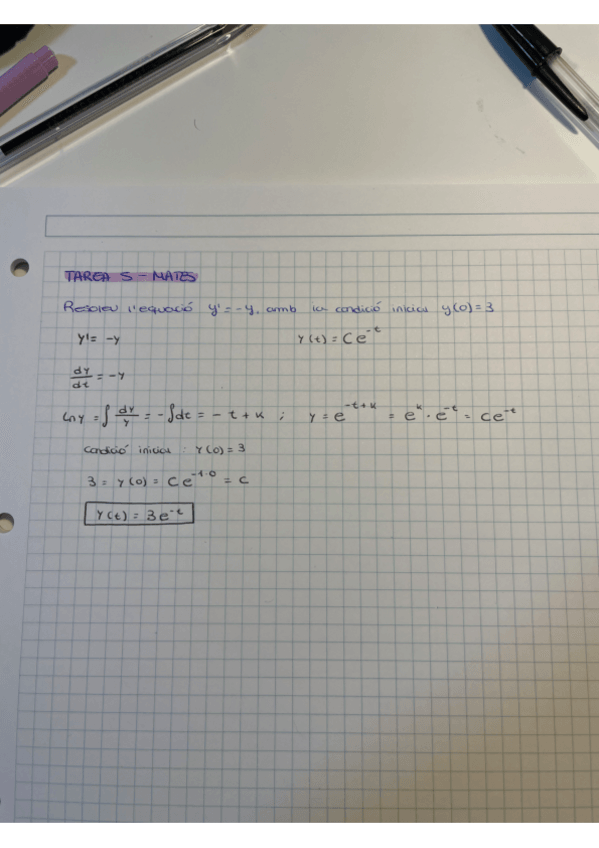 TAREA 5 - MATES
Resoleu l'equació y' = -y, amb la condició inicial y(0) = 3
y' = -y
y(t) = Ce^-t
dy/dt = -y
Ln y = ∫ dy/y = - ∫dt = - t + k ; y = e^-t+k = e^k · e^-t = Ce^-t
Condició inicial : y(0) = 3
3 = y(0) = Ce^-1·0 = C
y(t) = 3e^-t